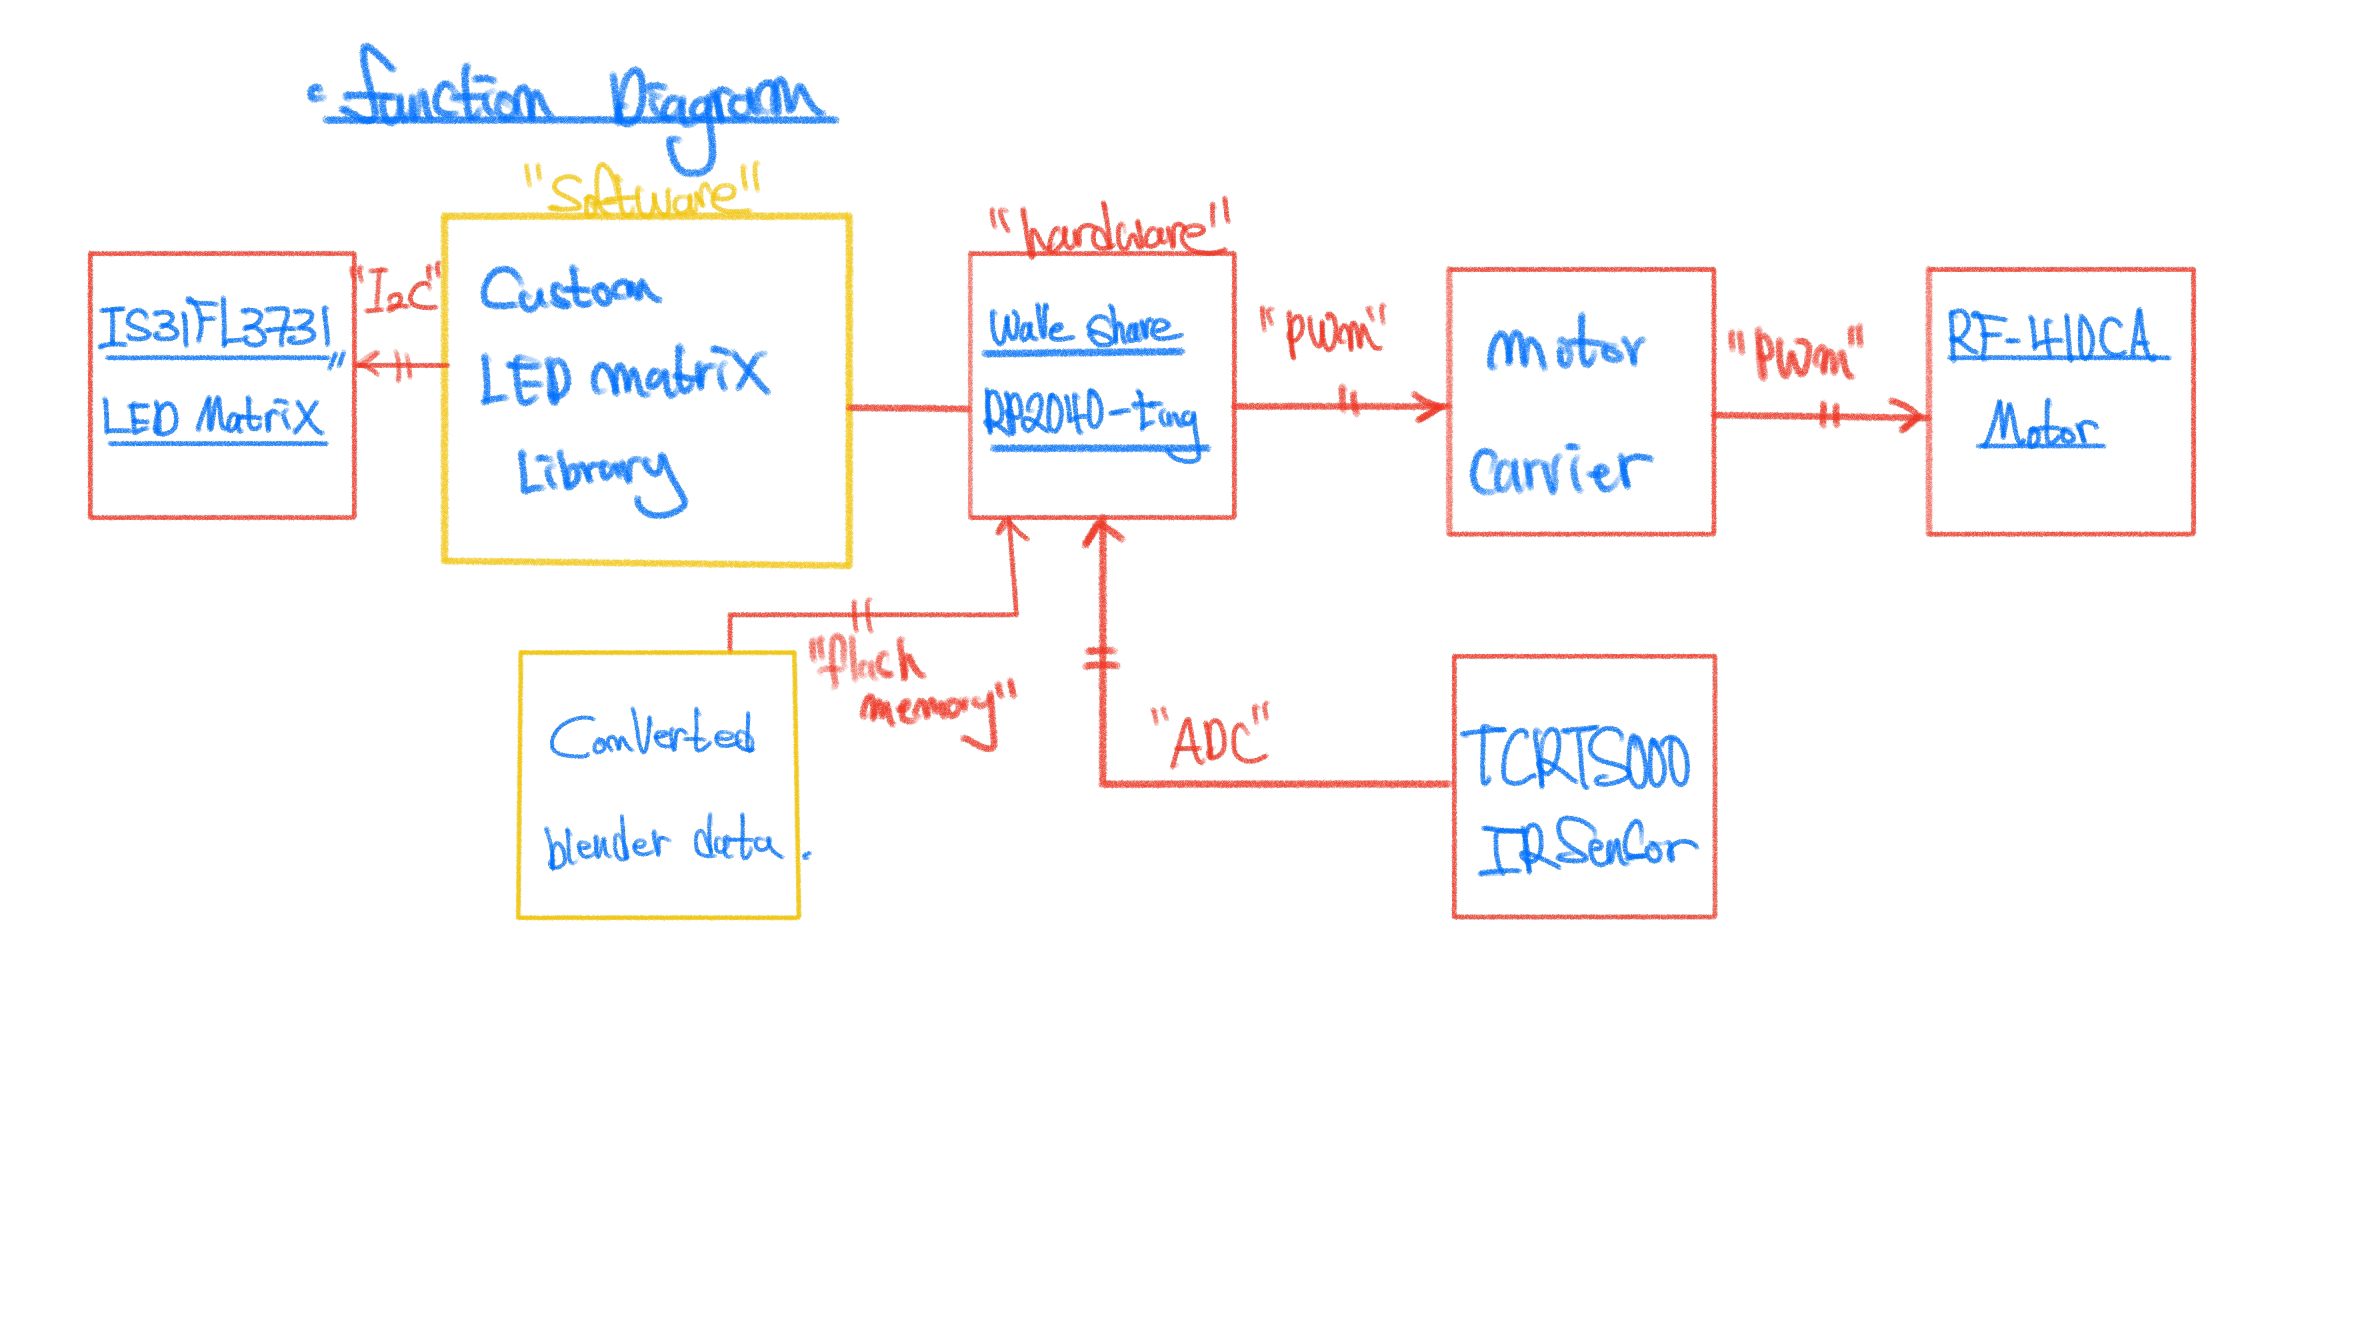 function Diagram
"Software"
"hardware"
IS31FL3731
LED Matrix
"I2C"
Custom
LED matrix
Library
Wave share
RP2040-ting
"PWm"
motor
carrier
"PWm"
RF-410CA
Motor
"flach
memory"
Converted
blender data.
"ADC"
TCRT5000
IRSencor